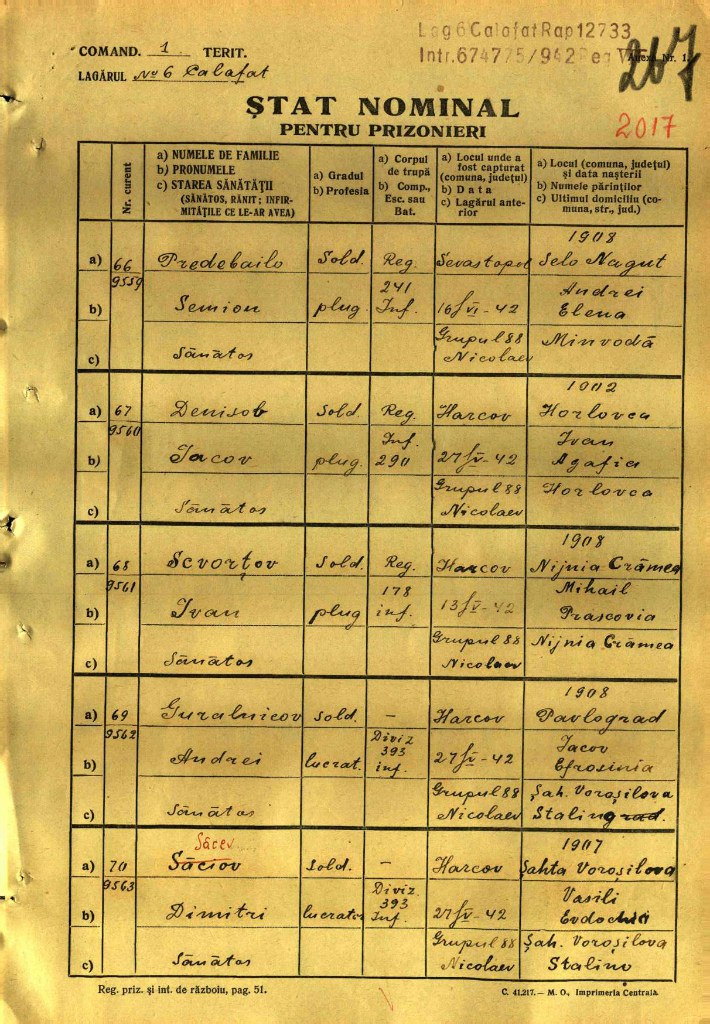 Lag 6 Calafat Rap 12733
Intr. 674775/942 Reg V
Anexa Nr. 1.
267
COMAND. 1 TERIT.
LAGĂRUL No 6 Calafat
ȘTAT NOMINAL
PENTRU PRIZONIERI
2017
Nr. curent
a) NUMELE DE FAMILIE
b) PRONUMELE
c) STAREA SĂNĂTĂȚII
(SĂNĂTOS, RĂNIT; INFIRMITĂȚILE CE LE-AR AVEA)
a) Gradul
b) Profesia
a) Corpul de trupă
b) Comp., Esc. sau Bat.
a) Locul unde a fost capturat (comuna, județul)
b) Data
c) Lagărul anterior
a) Locul (comuna, județul) și data nașterii
b) Numele părinților
c) Ultimul domiciliu (comuna, str., jud.)
1908
a) 66 Predebailo Sold. Reg. Sevastopol Selo Nagut
9559
b) Semion plug. 241 Inf. 16/VI-42 Andrei Elena
c) Sănătos Grupul 88 Nicolaev Minvodă
1902
a) 67 Denisob Sold. Reg. Harcov Horlovca
9560
b) Iacov plug. Inf. 290 27/V-42 Ivan Agafia
c) Sănătos Grupul 88 Nicolaev Horlovca
1908
a) 68 Scvorțov Sold. Reg. Harcov Nijnia Crâmea
9561
b) Ivan plug 178 inf. 13/V-42 Mihail Prascovia
c) Sănătos Grupul 88 Nicolaev Nijnia Crâmea
1908
a) 69 Guralnicov Sold. — Harcov Pavlograd
9562
b) Andrei lucrat. Diviz 393 inf. 27/V-42 Iacov Efrosinia
c) Sănătos Grupul 88 Nicolaev Șah. Voroșilova Stalingrad.
Săcev
1907
a) 70 Săciov Sold. — Harcov Șahta Voroșilova
9563
b) Dimitri lucrator Diviz. 393 Inf. 27/V-42 Vasili Evdochia
c) Sănătos Grupul 88 Nicolaev Șah. Voroșilova Stalino
Reg. priz. și int. de războiu, pag. 51.
C. 41.217. — M. O., Imprimeria Centrală.